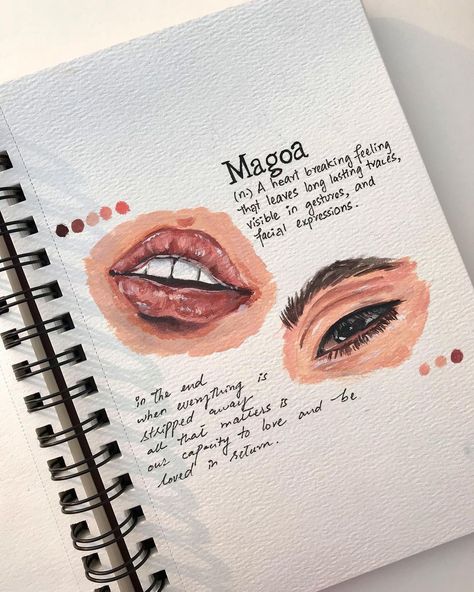 Magoa
(n.) A heart breaking feeling
that leaves long lasting traces,
visible in gestures, and
facial expressions.
in the end
when everything is
stripped away
all that matters is
our capacity to love and be
loved in return.